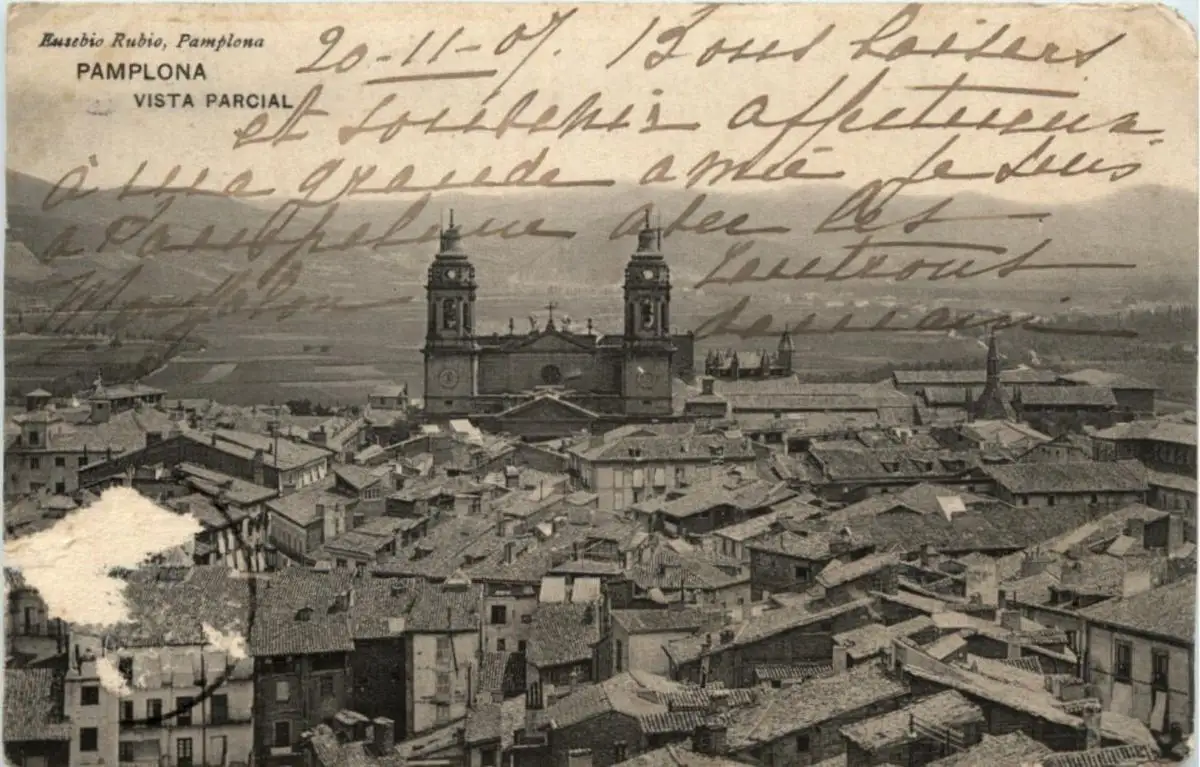 Eusebio Rubio, Pamplona
PAMPLONA
VISTA PARCIAL
20-11-07. Bons baisers
et souvenir affectueux
à une grande amie je suis
a Pampelune avec les
demain